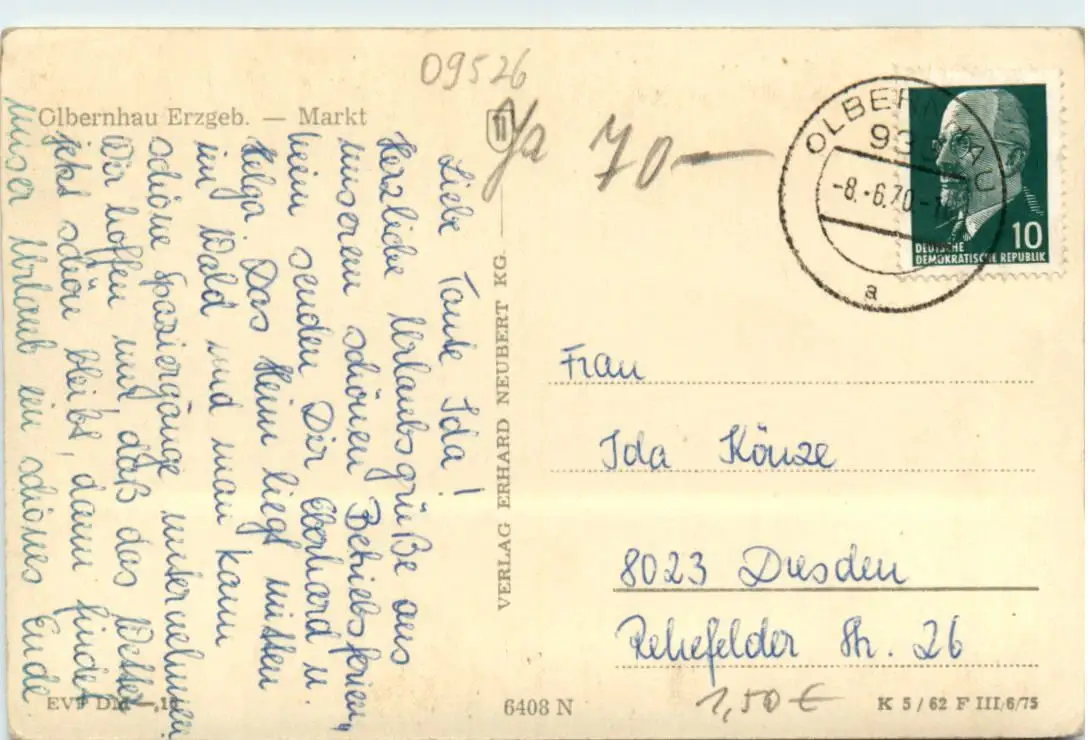 09526
Olbernhau Erzgeb. — Markt
70—
Liebe Tante Ida!
Herzliche Urlaubsgrüße aus
unserem schönen Betriebsferien
heim senden Dir Eberhard u.
Helga. Das Heim liegt mitten
im Wald und man kann
schöne Spaziergänge unternehmen
Wir hoffen nur, daß das Wetter
jetzt schön bleibt, dann findet
unser Urlaub ein schönes Ende
VERLAG ERHARD NEUBERT KG.
OLBERNHAU
-8.-6.70-
a
10
DEUTSCHE
DEMOKRATISCHE REPUBLIK
Frau
Ida Könze
8023 Dresden
Rehefelder Str. 26
EVP DM —,10
6408 N
1,50 €
K 5/62 F III/6/75